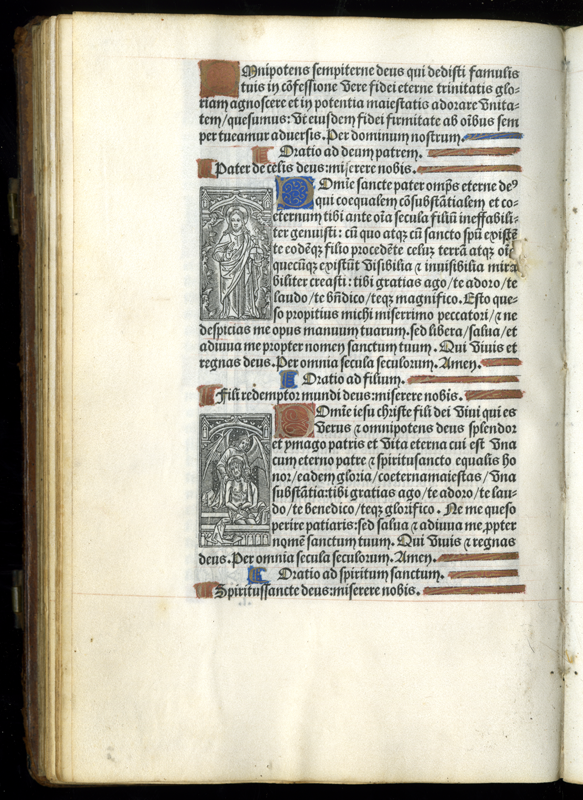 Omnipotens sempiterne deus qui dedisti famulis
tuis in cõfessione vere fidei eterne trinitatis glo-
riam agnoscere et in potentia maiestatis adorare vnita-
tem/quesumus: vt eiusdem fidei firmitate ab oĩbus sem
per tueamur aduersis. Per dominum nostrum.
Oratio ad deum patrem.
Pater de celis deus: miserere nobis.
Domĩe sancte pater omp̃s eterne de⁹
qui coequalem cõsubstãtialem et co-
eternum tibi ante oĩa secula filiũ ineffabili-
ter genuisti: cũ quo atqȝ cũ sancto spũ ex ip̃e
te eodẽqȝ filio procedẽte celuȝ terrã atqȝ oĩa
quecũqȝ existũt visibilia ⁊ inuisibilia mira
biliter creasti: tibi gratias ago/te adoro/te
laudo/te bñdico/teqȝ magnifico. Esto que-
so propitius michi miserrimo peccatori/⁊ ne
despicias me opus manuum tuarum. sed libera/salua/et
adiuua me propter nomen sanctum tuum. Qui viuis et
regnas deus. Per omnia secula seculorum. Amen.
Oratio ad filium.
Fili redemptor mundi deus: miserere nobis.
Domĩe iesu christe fili dei viui qui es
verus ⁊ omnipotens deus splendor
et ymago patris et vita eterna cui est vna
cum eterno patre ⁊ spiritusancto equalis ho
nor/eadem gloria/coeterna maiestas/vna
substãtia: tibi gratias ago/te adoro/te lau-
do/te benedico/teqȝ glorifico. Ne me queso
perire patiaris: sed salua ⁊ adiuua me, ꝓpter
nomẽ sanctum tuum. Qui viuis ⁊ regnas
deus. Per omnia secula seculorum. Amen.
Oratio ad spiritum sanctum.
Spiritussancte deus: miserere nobis.